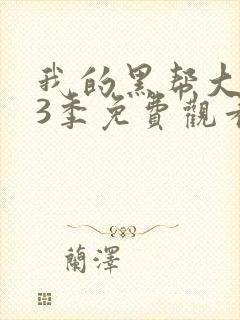 我的黑帮大
3季免費觀看
蘭澤